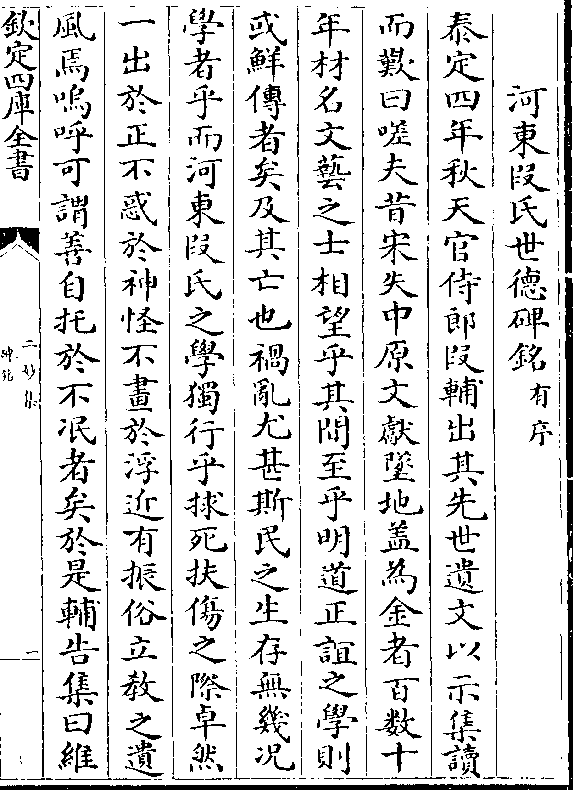 河東段氏世德碑銘有序
泰定四年秋天官侍郎段輔出其先世遺文以示集讀
而歎曰嗟夫昔宋失中原文獻墜地盖為金者百數十
年材名文藝之士相望乎其間至乎明道正誼之學則
或鮮傳者矣及其亡也禍亂尤甚斯民之生存無幾况
學者乎而河東段氏之學獨行乎捄死扶傷之際卓然
一出於正不惑於神怪不畫於浮近有振俗立教之遺
風焉嗚呼可謂善自托於不泯者矣於是輔告集曰維
欽定四庫全書
二妙集
碑銘
一